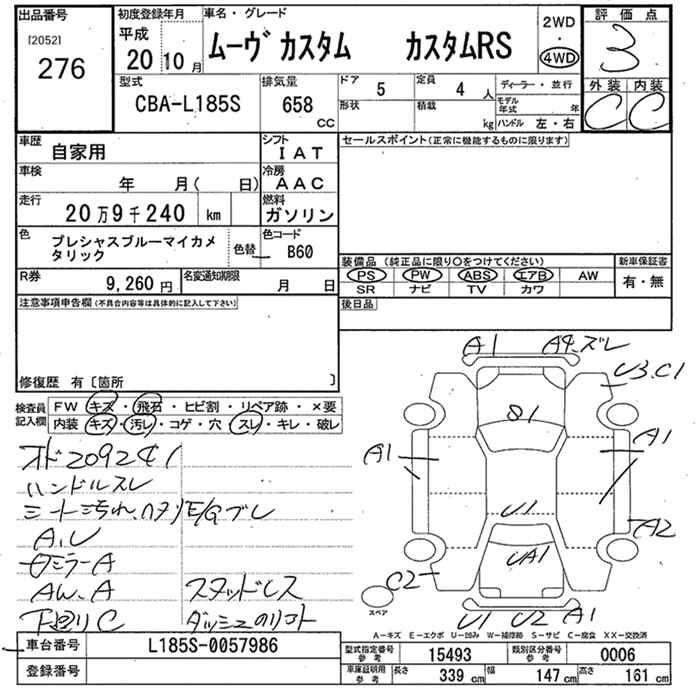 出品番号
[2052]
276
初度登録年月
平成
20年10月
車名・グレード
ムーヴ カスタム カスタムRS
2WD
・
4WD
評価点
3
外装 内装
C C
型式
CBA-L185S
排気量
658
CC
ドア
5
形状
定員
4人
積載
kg
ディーラー・並行
モデル年式 年
ハンドル 左・右
車歴
自家用
シフト
IAT
車検
年 月( 日)
冷房
AAC
走行
20万9千240 km
燃料
ガソリン
色
プレシャスブルーマイカメタリック
色替
色コード
B60
R券
9,260円
名変通知期限
月 日
セールスポイント(正常に機能するものに限ります)
装備品 (純正品に限り○をつけてください)
PS PW ABS エアB AW
SR ナビ TV カワ
新車保証書
有・無
後日品
注意事項申告欄(不具合内容等は具体的に記入して下さい)
修復歴 有〔箇所 〕
検査員記入欄
FW キズ・飛石・ヒビ割・リペア跡・×要
内装 キズ・汚レ・コゲ・穴・スレ・キレ・破レ
オド209241
ハンドルスレ
シート汚れ、ヘタリ E/Gブレ
A,U
ミラーA
AW,A スタッドレス
下廻りC
A1 A4、ズレ
U3、C1
S1
A1
A1
U1
A2
UA1
C2
U1 U2 A1
スペア
A-キズ E-エクボ U-凹み W-補修跡 S-サビ C-腐食 XX-交換済
車台番号
L185S-0057986
登録番号
型式指定番号参考
15493
類別区分番号参考
0006
車庫証明用参考
長さ 339 cm 幅 147 cm 高さ 161 cm